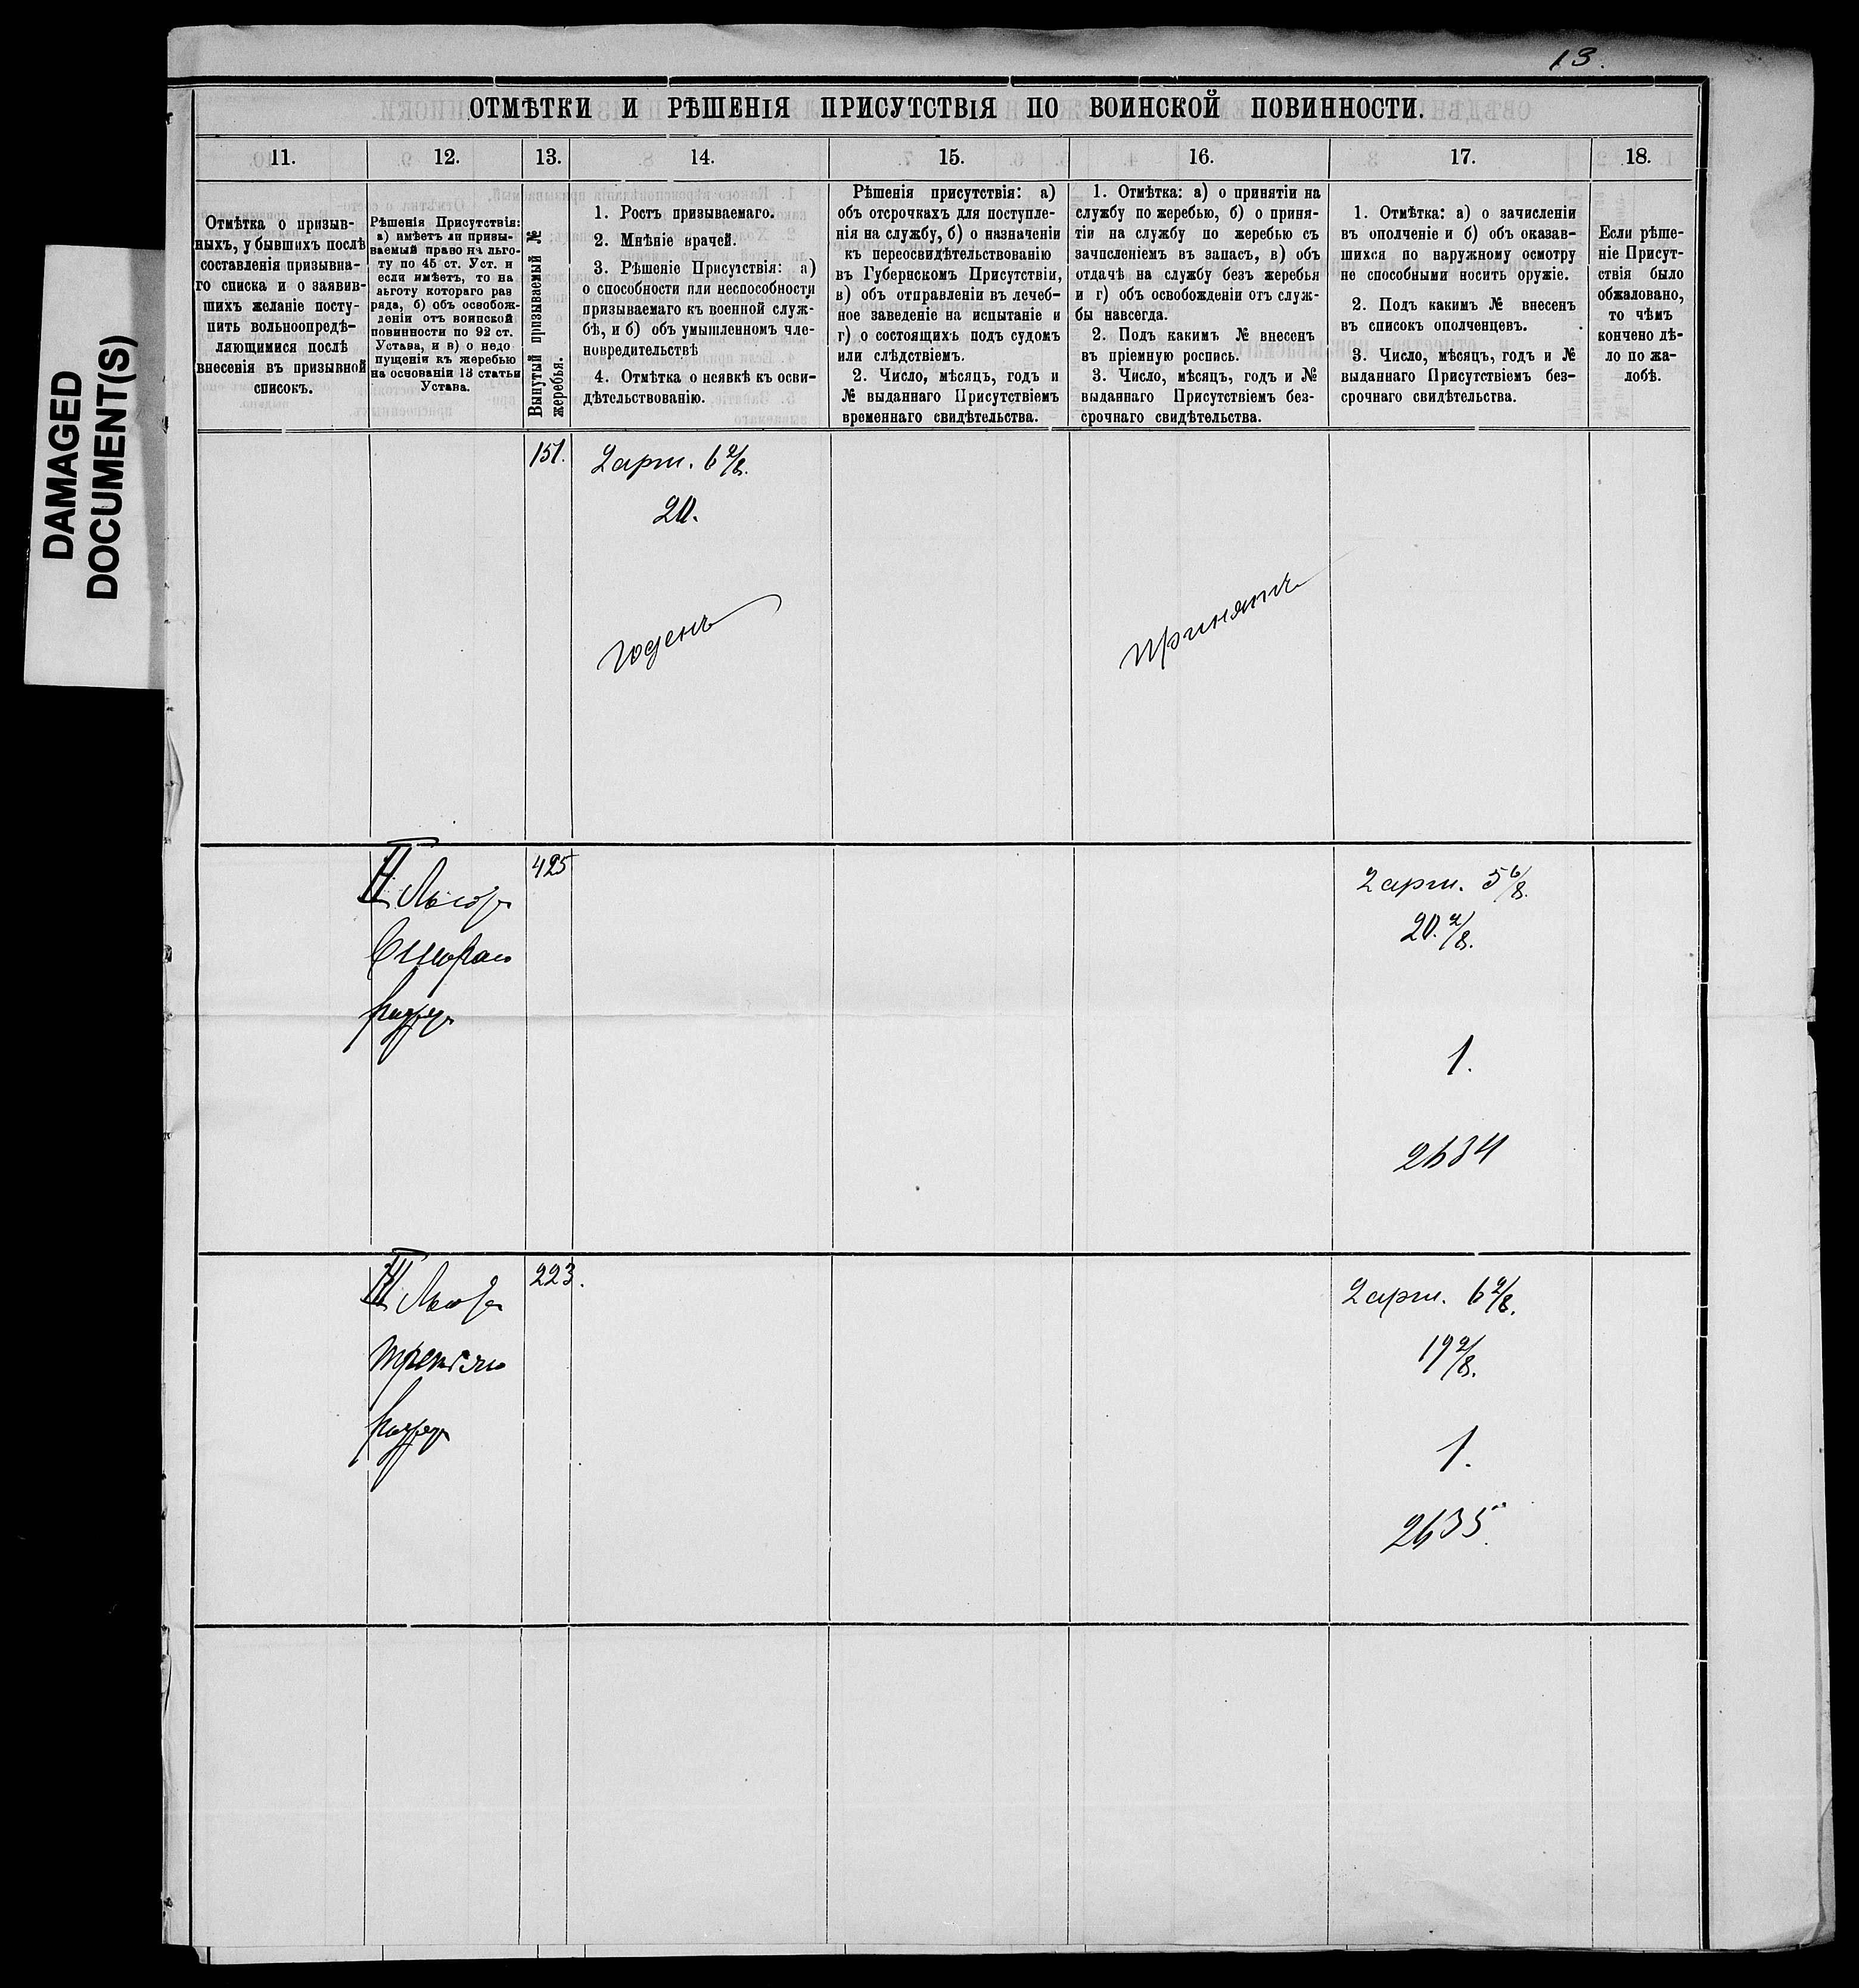 13.
DAMAGED
DOCUMENT(S)
ОТМѢТКИ И РѢШЕНІЯ ПРИСУТСТВІЯ ПО ВОИНСКОЙ ПОВИННОСТИ.
11.
12.
13.
14.
15.
16.
17.
18.
Отмѣтка о призыв-
ныхъ, у бывшихъ послѣ
составленія призывна-
го списка и о заявив-
шихъ желаніе посту-
пить вольноопредѣ-
ляющимися послѣ
внесенія въ призывной
списокъ.
Рѣшенія Присутствія:
а) имѣетъ ли призы-
ваемый право на льго-
ту по 45 ст. Уст. и
если имѣетъ, то на
льготу котораго раз
ряда, б) объ освобож-
деніи отъ воинской
повинности по 92 ст.
Устава, и в) о недо
пущеніи къ жеребью
на основаніи 13 статьи
Устава.
Вынутый призываемый №
жеребья.
1. Ростъ призываемаго.
2. Мнѣніе врачей.
3. Рѣшеніе Присутствія: а)
о способности или неспособности
призываемаго къ военной служ-
бѣ, и б) объ умышленномъ чле-
новредительствѣ
4. Отмѣтка о неявкѣ къ осви-
дѣтельствованію.
Рѣшенія присутствія: а)
объ отсрочкахъ для поступле-
нія на службу, б) о назначеніи
къ переосвидѣтельствованію
въ Губернскомъ Присутствіи,
в) объ отправленіи въ лечеб-
ное заведеніе на испытаніе и
г) о состоящихъ подъ судомъ
или слѣдствіемъ.
2. Число, мѣсяцъ, годъ и
№ выданнаго Присутствіемъ
временнаго свидѣтельства.
1. Отмѣтка: а) о принятіи на
службу по жеребью, б) о приня-
тіи на службу по жеребью съ
зачисленіемъ въ запасъ, в) объ
отдачѣ на службу безъ жеребья
и г) объ освобожденіи отъ служ-
бы навсегда.
2. Подъ какимъ № внесенъ
въ пріемную роспись.
3. Число, мѣсяцъ, годъ и №
выданнаго Присутствіемъ без-
срочнаго свидѣтельства.
1. Отмѣтка: а) о зачисленіи
въ ополченіе и б) объ оказав-
шихся по наружному осмотру
не способными носить оружіе.
2. Подъ какимъ № внесенъ
въ списокъ ополченцевъ.
3. Число, мѣсяцъ, годъ и №
выданнаго Присутствіемъ без-
срочнаго свидѣтельства.
Если рѣше-
ніе Присут-
ствія было
обжаловано,
то чѣмъ
кончено дѣ-
ло по жа-
лобѣ.
151.
2 арш. 6 2/8.
20.
годенъ
принятъ
II Льгота
Второго
разряд
425
2 арш. 5 6/8.
20. 2/8.
1.
2634
III Льгота
третьяго
разряд
223.
2 арш. 6 2/8.
19 2/8.
1.
2635.